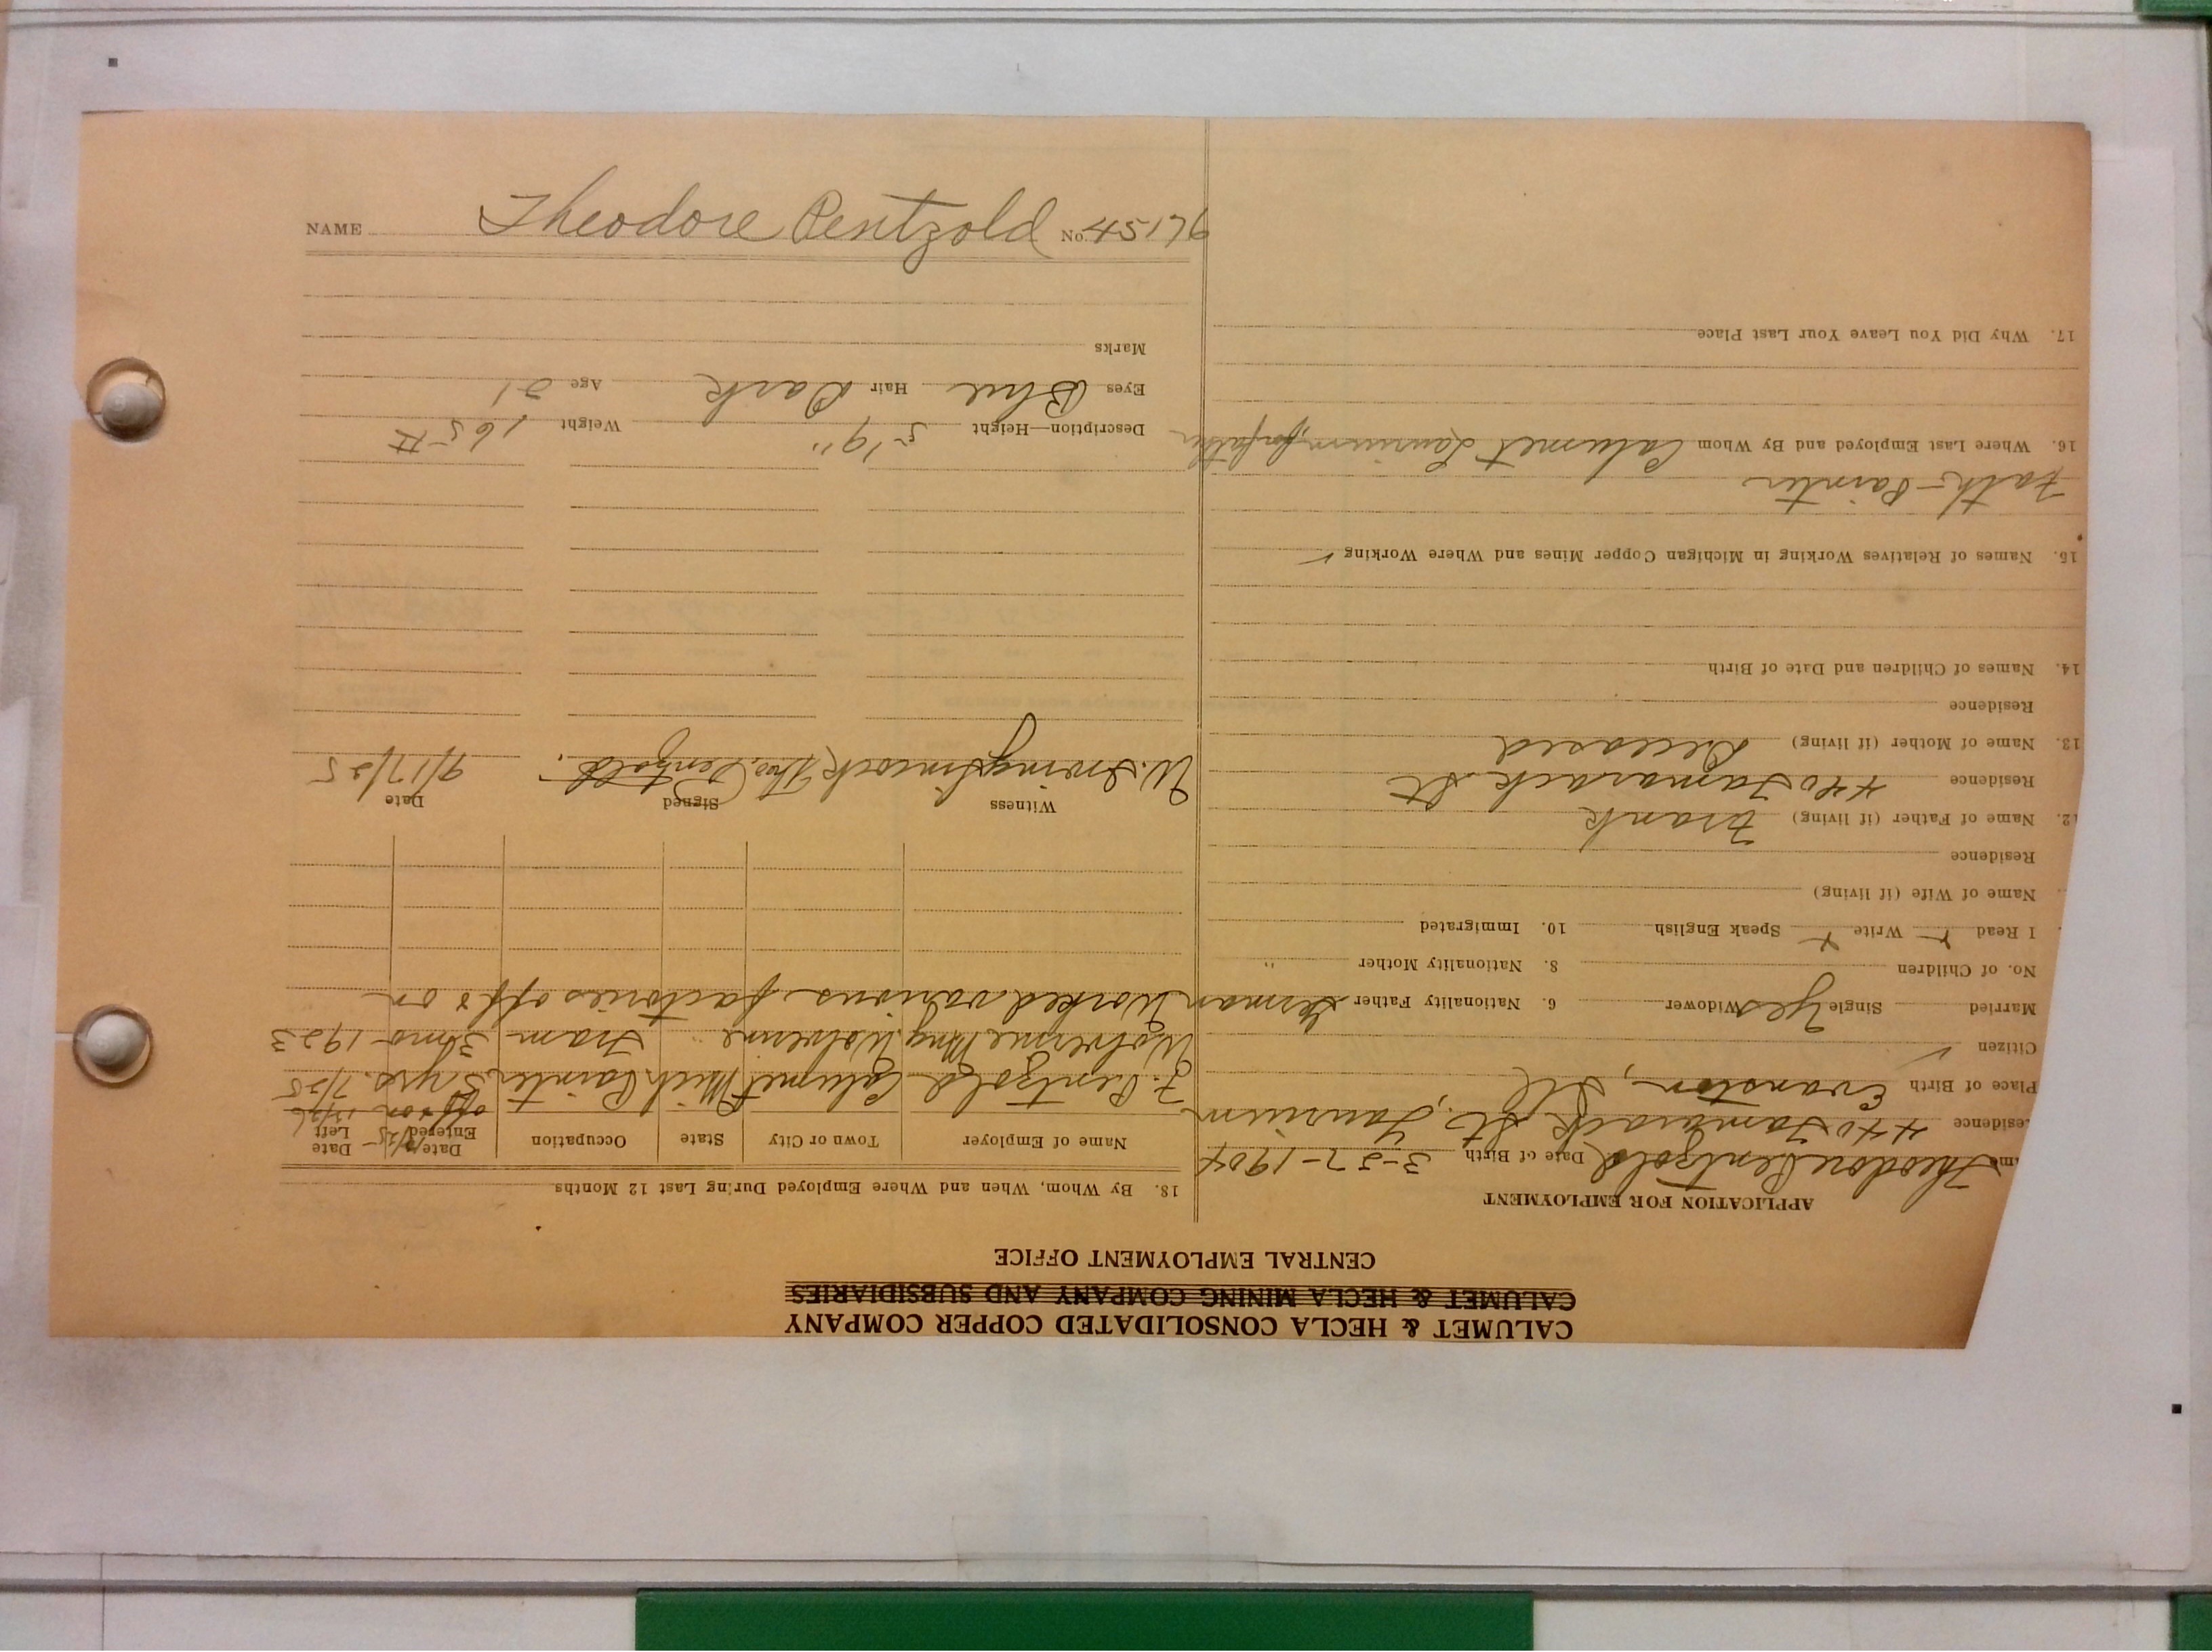 NAME Theodore Pentzold No. 45176
CALUMET & HECLA CONSOLIDATED COPPER COMPANY
CALUMET & HECLA MINING COMPANY AND SUBSIDIARIES
CENTRAL EMPLOYMENT OFFICE
APPLICATION FOR EMPLOYMENT
me Theodore Pentzold Date of Birth 3-27-1904
esidence 440 Tamarack St., Laurium
Place of Birth Evanston, Ill
Citizen ✓
Married Single Yes Widower 6. Nationality Father German
No. of Children 8. Nationality Mother "
I Read Write Speak English 10. Immigrated
Name of Wife (if living)
Residence
12. Name of Father (if living) Frank
Residence 440 Tamarack St
13. Name of Mother (if living) Deceased
Residence
14. Names of Children and Date of Birth
15. Names of Relatives Working in Michigan Copper Mines and Where Working ✓
Fath - Painter
16. Where Last Employed and By Whom Calumet Laurium, for father
17. Why Did You Leave Your Last Place
18. By Whom, When and Where Employed During Last 12 Months
Name of Employer Town or City State Occupation Date Entered Date Left
off & on
F. Pentzold Calumet Mich Painter 5 yrs. 7/25
Wolverine Mng Wolverine " Tram 3 mo 1923
Worked various factories off & on
Witness Signed Date
W. Irving Simcock Theo. Pentzold. 9/17/25
Description—Height 5'9" Weight 165 #
Eyes Blue Hair Dark Age 21
Marks